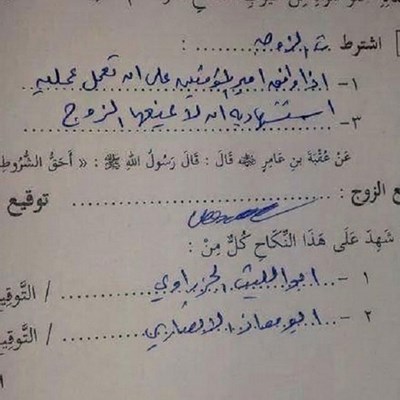 اشترط ت الزوجه :
١- اذا وافق امير المؤمنين على ان تعمل عمليه
٣- استشهاديه ان لا يمنعها الزوج
عَنْ عُقْبَةَ بنِ عَامِرٍ ﷺ قَالَ : قَالَ رَسُولُ اللهِ ﷺ : « أَحَقُّ الشُّرُوطِ
ع الزوج : توقيع
شَهِدَ عَلَى هَذَا النِّكَاحِ كُلٌّ مِنْ :
١ - ابو الليث الجزراوي / التَّوقِيع
٢ - ابو معاذ الانصاري / التَّوقِيع